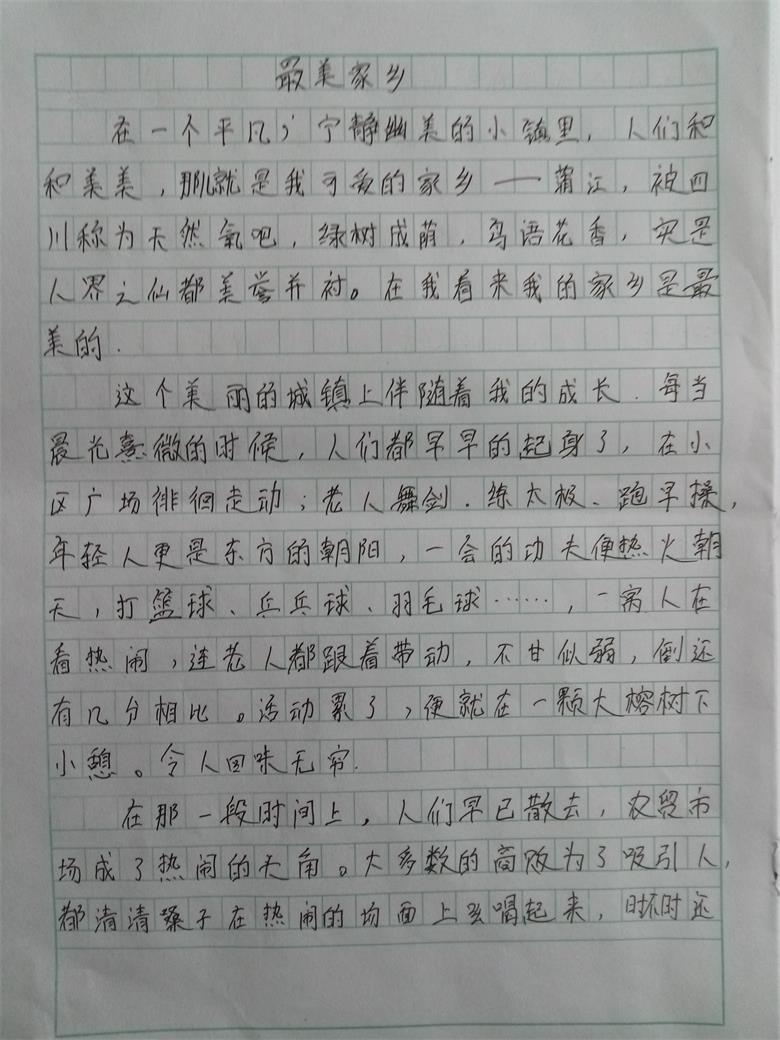 最美家乡
在一个平凡，宁静幽美的小镇里，人们和
和美美，那儿就是我可爱的家乡——蒲江，被四
川称为天然氧吧，绿树成荫，鸟语花香，实是
人界之仙都美誉并衬。在我看来我的家乡是最
美的.
这个美丽的城镇上伴随着我的成长.每当
晨光熹微的时候，人们都早早的起身了，在小
区广场徘徊走动；老人舞剑.练太极、跑早操，
年轻人更是东方的朝阳，一会的功夫便热火朝
天，打篮球、乒乓球、羽毛球……，一离人在
看热闹，连老人都跟着带动，不甘似弱，倒还
有几分相比。活动累了，便就在一颗大榕树下
小憩。令人回味无穷.
在那一段时间上，人们早已散去，农贸市
场成了热闹的天角。大多数的商贩为了吸引人，
都清清嗓子在热闹的场面上喝起来，时不时还